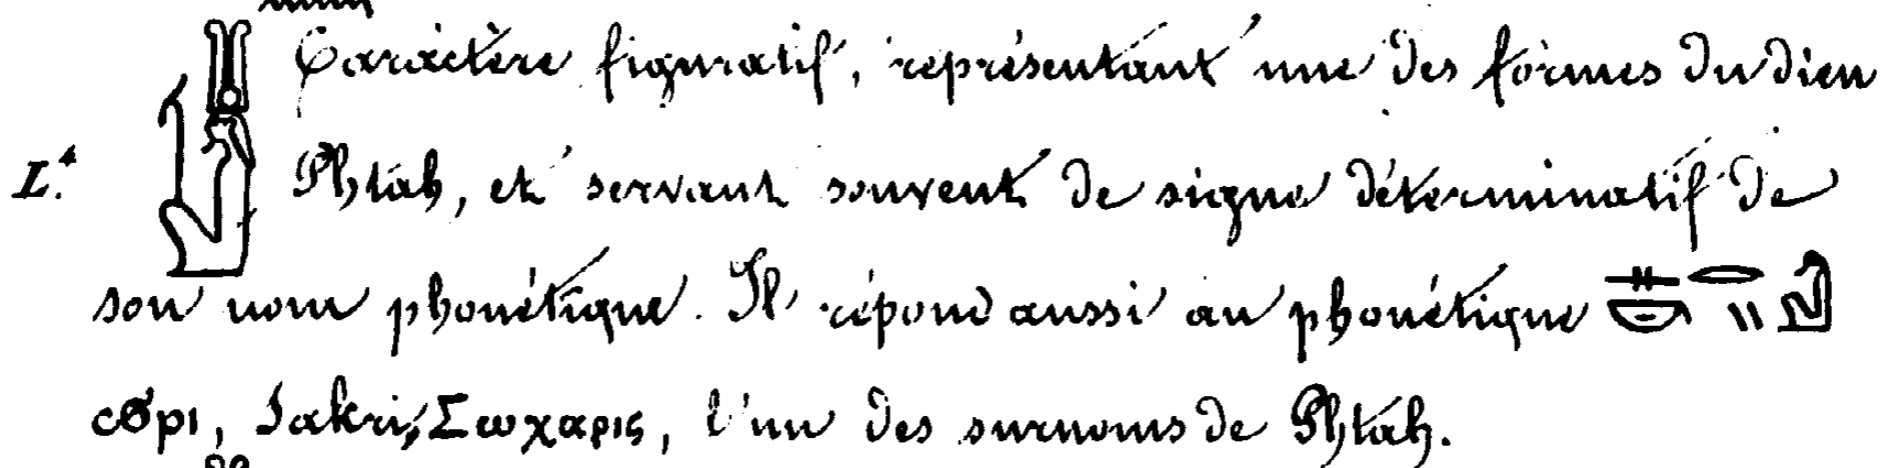 Caractère figuratif, représentant une des formes du dieu
L.⁴ Phtah, et servant souvent de signe déterminatif de
son nom phonétique. Il répond aussi au phonétique
ⲥϭⲣⲓ, Sakri, Σωχαρις, l'un des surnoms de Phtah.